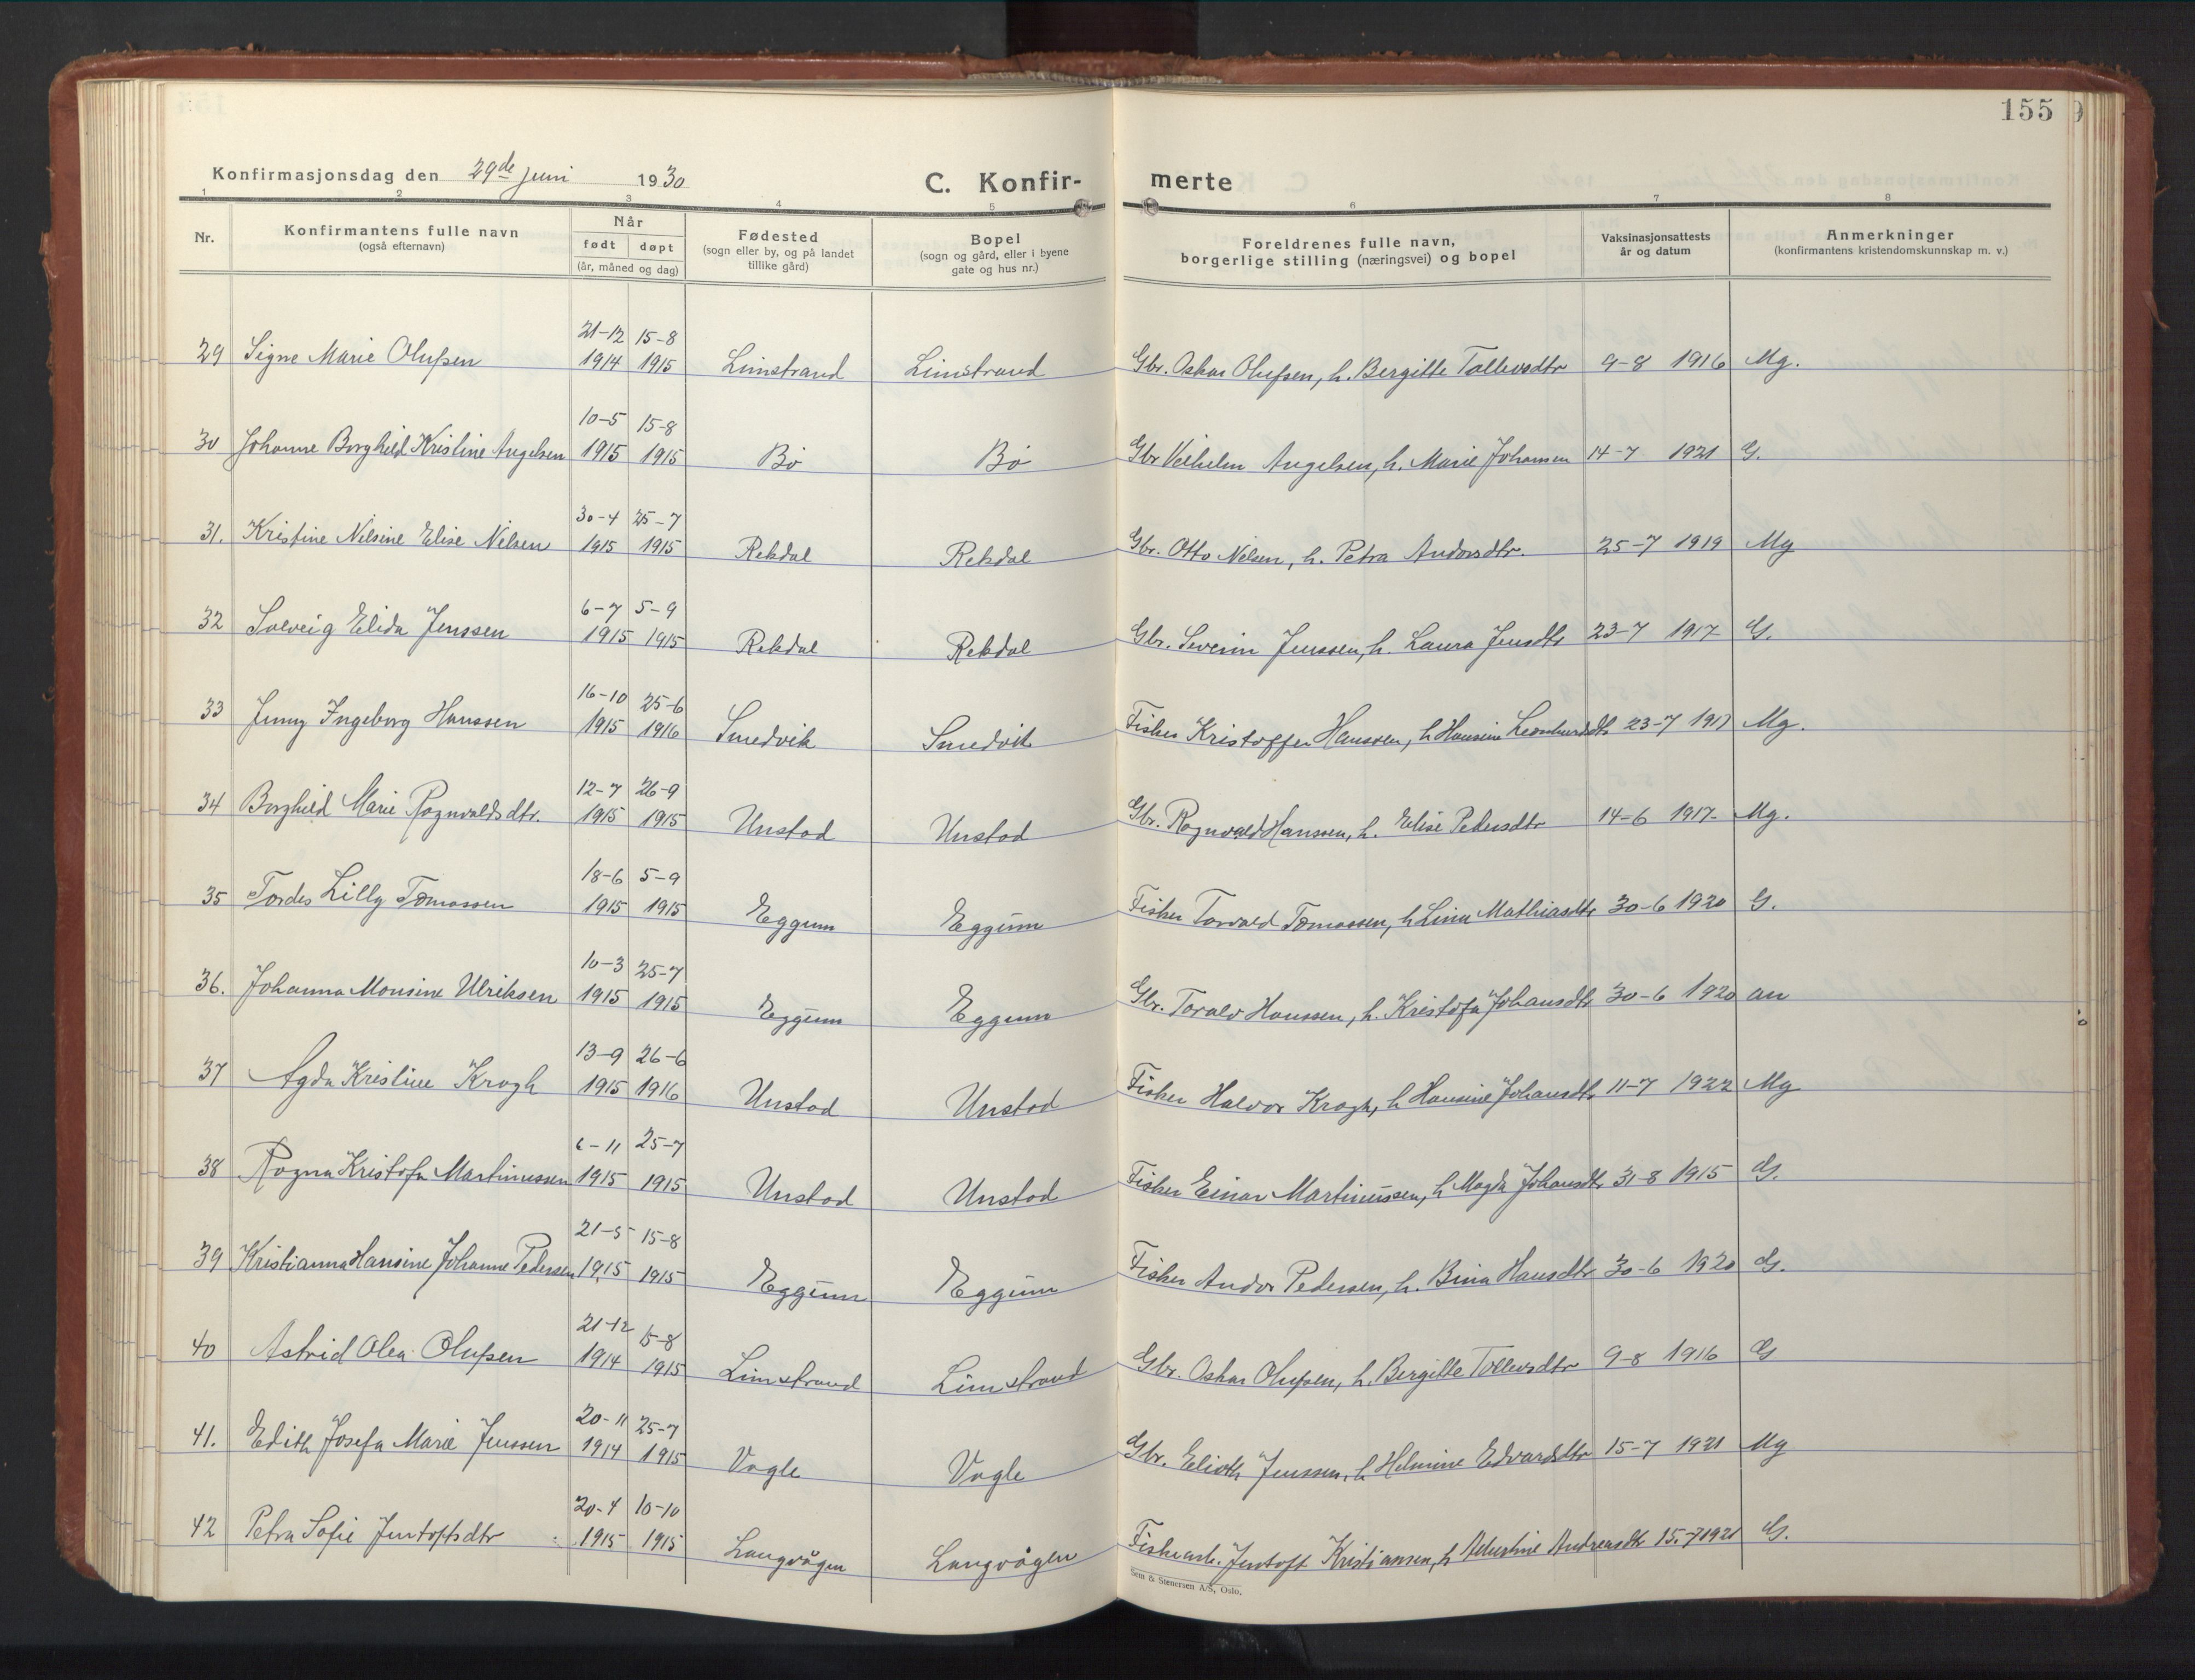 155
Konfirmasjonsdag den 29de juni 1930
C. Konfir- merte
1 2 3 4 5 6 7 8
Nr. Konfirmantens fulle navn (også efternavn) Når født døpt (år, måned og dag) Fødested (sogn eller by, og på landet tillike gård) Bopel (sogn og gård, eller i byene gate og hus nr.) Foreldrenes fulle navn, borgerlige stilling (næringsvei) og bopel Vaksinasjonsattests år og datum Anmerkninger (konfirmantens kristendomskunnskap m. v.)
29 Signe Marie Olufsen 21-12 1914 15-8 1915 Limstrand Limstrand Gbr. Oskar Olufsen, h. Bergitte Tollevsdtr 9-8 1916 Mg.
30 Johanne Borghild Kristine Angelsen 10-5 1915 15-8 1915 Bø Bø Gbr Vilhelm Angelsen, h. Marie Johansen 14-7 1921 G.
31. Kristine Nilsine Elise Nilsen 30-4 1915 25-7 1915 Rekdal Rekdal Gbr. Otto Nilsen, h. Petra Andorsdtr. 25-7 1919 Mg
32 Solveig Elida Jenssen 6-7 1915 5-9 1915 Rekdal Rekdal Gbr. Severin Jenssen, h. Laura Jensdtr 23-7 1917 G.
33 Jenny Ingeborg Hanssen 16-10 1915 25-6 1916 Smedvik Smedvik Fisker Kristoffer Hanssen, h Hansine Leonhardsdtr 23-7 1917 Mg.
34 Borghild Marie Rognvaldsdtr. 12-7 1915 26-9 1915 Unstad Unstad Gbr. Rognvald Hanssen, h. Elise Pedersdtr 14-6 1917 Mg.
35 Tordes Lilly Tomassen 18-6 1915 5-9 1915 Eggum Eggum Fisker Torvald Tomassen, h Lina Mathiasdtr 30-6 1920 G.
36. Johanna Monsine Ulriksen 10-3 1915 25-7 1915 Eggum Eggum Gbr. Toralv Hanssen, h. Kristofa Johansdtr 30-6 1920 an
37 Agda Kristine Krogh 13-9 1915 26-6 1916 Unstad Unstad Fisker Halvor Krogh, h Hansine Johansdtr 11-7 1922 Mg
38 Rogna Kristofa Martinussen 6-11 1915 25-7 1915 Unstad Unstad Fisker Einar Martinussen, h Magda Johansdtr 31-8 1915 G.
39 Kristianna Hansine Johanne Pedersen 21-5 1915 15-8 1915 Eggum Eggum Fisker Andor Pedersen, h. Bina Hansdtr 30-6 1920 G.
40 Astrid Olea Olufsen 21-12 1914 15-8 1915 Limstrand Limstrand Gbr. Oskar Olufsen, h. Bergitte Tollevsdtr 9-8 1916 G
41. Edith Josefa Marie Jenssen 20-11 1914 25-7 1915 Vagle Vagle Gbr. Elioth Jenssen, h Helmine Edvardsdtr 15-7 1921 Mg
42 Petra Sofie Jentoftsdtr 20-4 1915 10-10 1915 Langvågen Langvågen Fiskearb. Jentoft Kristiansen, h Albertine Andreasdtr 15.-7 1921 G.
Sem & Stenersen A/S, Oslo.